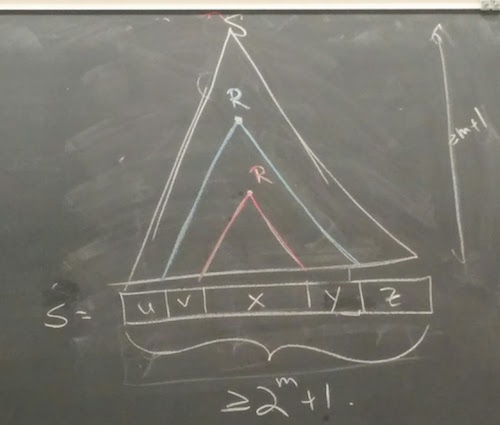 S
R
R
≥m+1
S = u v x y z
≥ 2^m + 1.